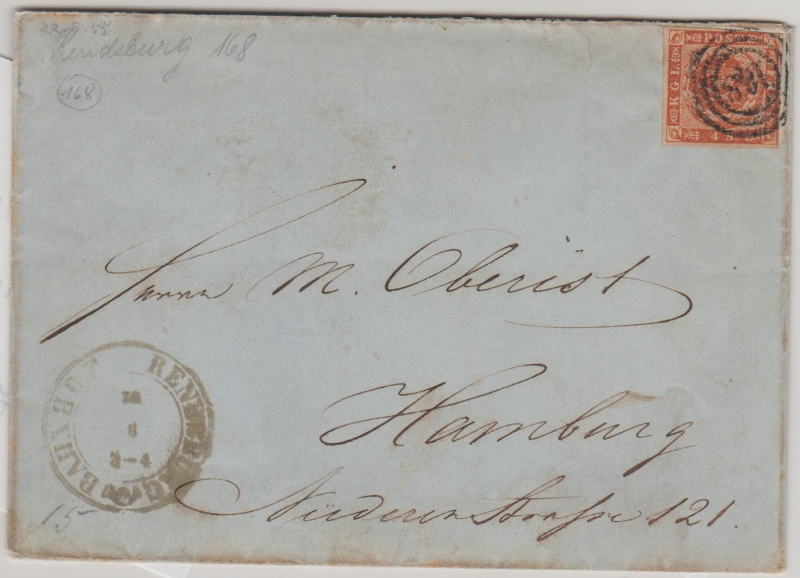 22.8.55
Rendsburg 168
168
KGL POST
4 S.
Herrn M. Oberist
Hamburg
Niederen Strasse 121.
RENDSBURG
BAHNHOF
3-4
15